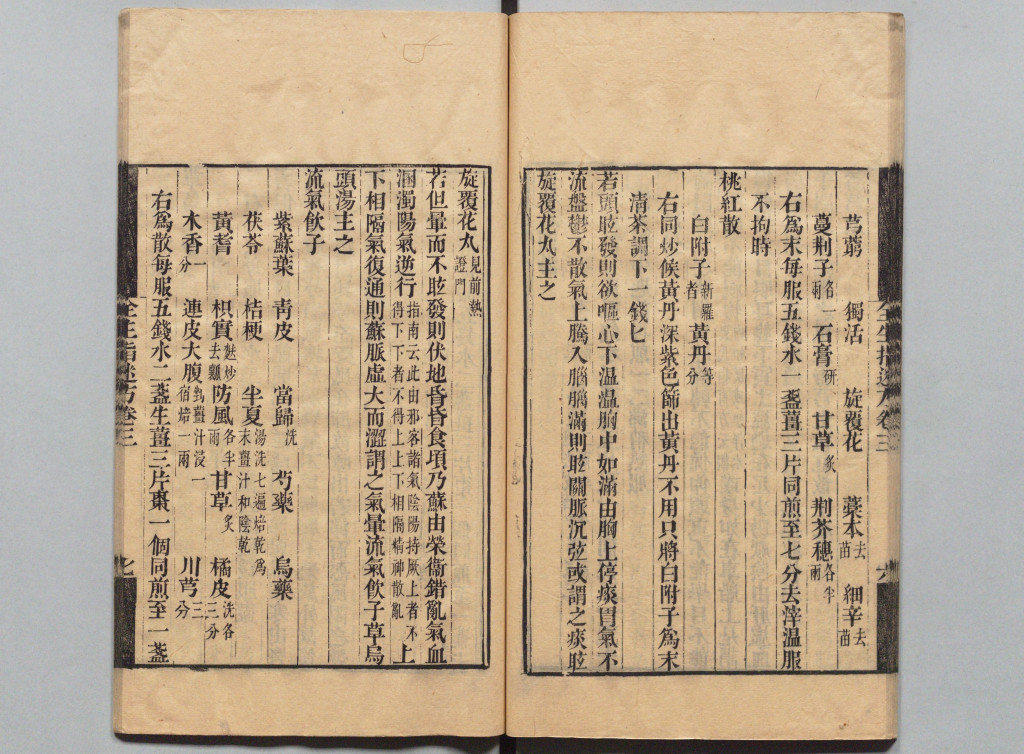 芎藭 獨活 旋覆花 藁本去苗 細辛去苗
蔓荆子各一兩 石膏研 甘草炙 荆芥穗各半兩
右為末每服五錢水一盞薑三片同煎至七分去滓温服
不拘時
桃紅散
白附子新羅者 黃丹等分
右同炒候黃丹深紫色篩出黃丹不用只將白附子為末
清茶調下一錢匕
若頭眩發則欲嘔心下温温胸中如滿由胸上停痰胃氣不
流盤鬱不散氣上騰入腦腦滿則眩關脈沉弦或謂之痰眩
旋覆花丸主之
全生指迷方卷三 六
旋覆花丸見前熱證門
若但暈而不眩發則伏地昏昏食頃乃蘇由榮衞錯亂氣血
溷濁陽氣逆行指南云此由邪客諸氣陰陽持厥上者不得下下者不得上上下相隔精神散亂上
下相隔氣復通則蘇脈虛大而澀謂之氣暈流氣飲子草烏
頭湯主之
流氣飲子
紫蘇葉 青皮 當歸洗 芍藥 烏藥
茯苓 桔梗 半夏湯洗七遍焙乾為末薑汁和陰乾
黃耆 枳實麩炒去瓤 防風各半兩 甘草炙 橘皮洗各三分
木香一分 連皮大腹剉薑汁浸一宿焙一兩 川芎三分
右為散每服五錢水二盞生薑三片棗一個同煎至一盞
全生指迷方卷三 七